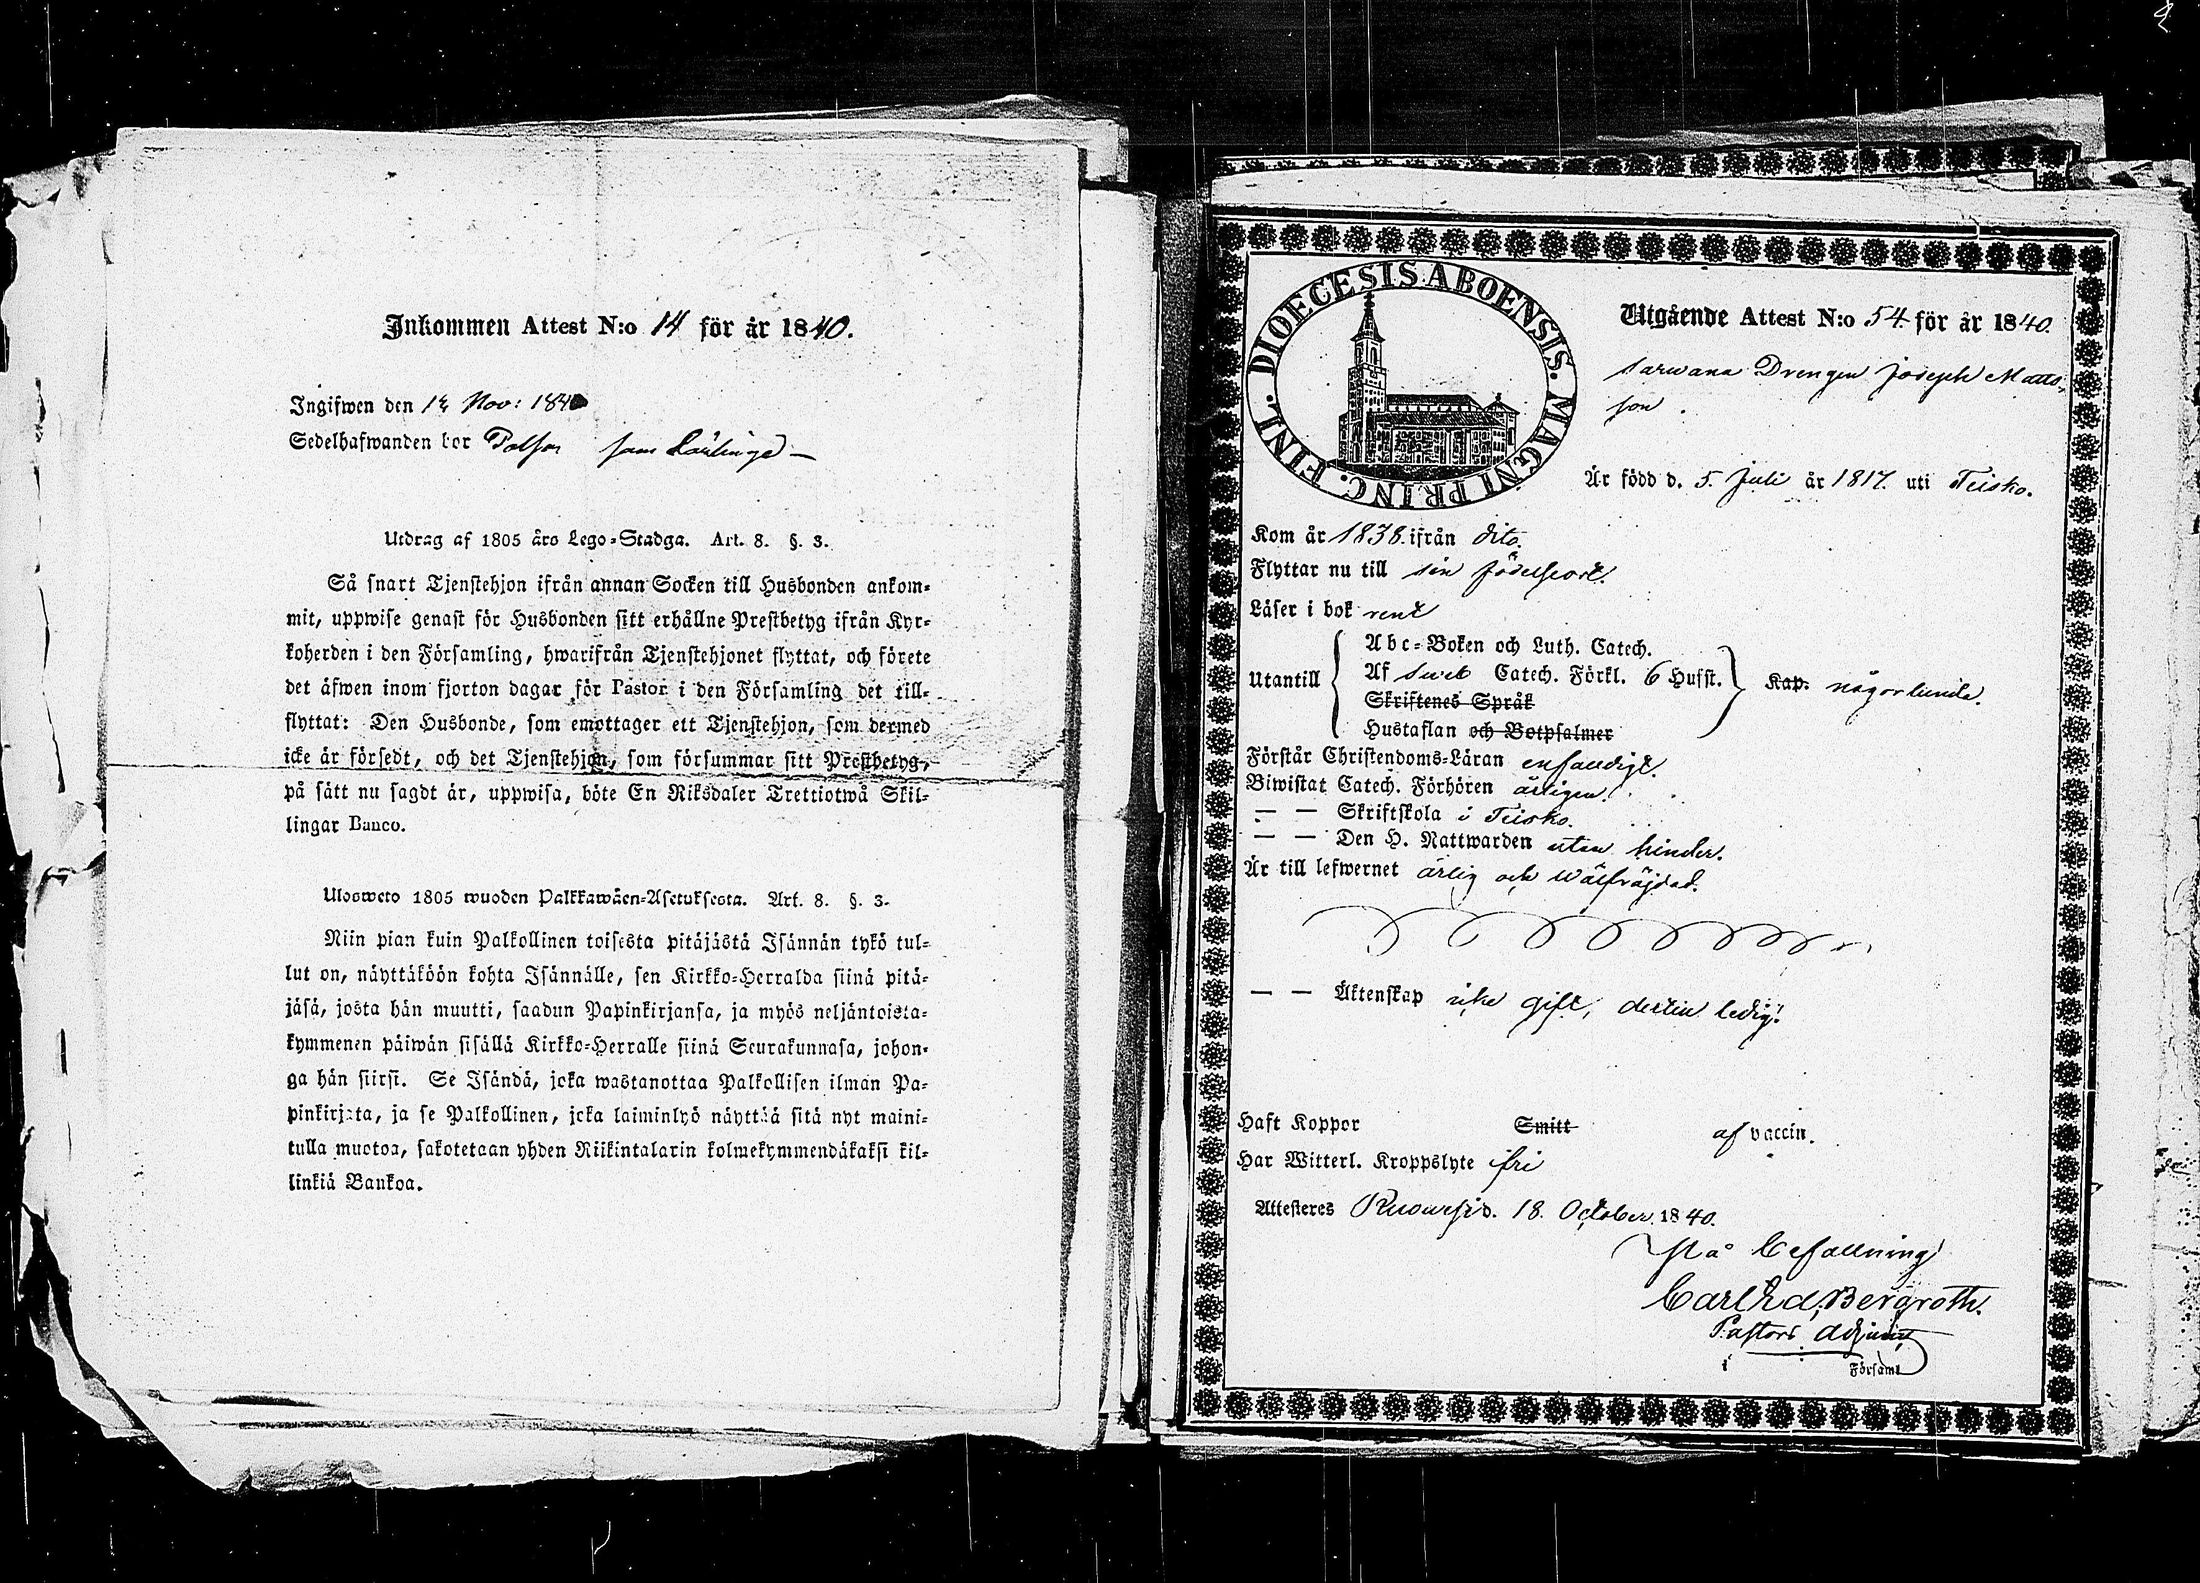 Inkommen Attest N:o 14 för år 1840.
Ingifwen den 14 Nov: 1840
Sedelhafwanden bor som
Utdrag af 1805 års Lego-Stadga. Art. 8. §. 3.
Så snart Tjenstehjon ifrån annan Socken till Husbonden ankom-
mit, uppwise genast för Husbonden sitt erhållne Prestbetyg ifrån Kyr-
koherden i den Församling, hwarifrån Tjenstehjonet flyttat, och förete
det äfwen inom fjorton dagar för Pastor i den Församling det till-
flyttat: Den Husbonde, som emottager ett Tjenstehjon, som dermed
icke är försedt, och det Tjenstehjon, som försummar sitt Prestbetyg,
på sätt nu sagdt är, uppwisa, böte En Riksdaler Trettiotwå Skil-
lingar Banco.
Ulosweto 1805 wuoden Palkkawäen-Asetuksesta. Art. 8. §. 3.
Niin pian kuin Palkollinen toisesta pitäjästä Isännän tykö tul-
lut on, näyttäköön kohta Isännälle, sen Kirkko-Herralda siinä pitä-
jäsä, josta hän muutti, saadun Papinkirjansa, ja myös neljäntoista-
kymmenen päiwän sisällä Kirkko-Herralle siinä Seurakunnasa, johon-
ga hän siirsi. Se Isändä, joka wastanottaa Palkollisen ilman Pa-
pinkirjata, ja se Palkollinen, joka laiminlyö näyttää sitä nyt maini-
tulla muotoa, sakotetaan yhden Riikintalarin kolmekymmendäkaksi kil-
linkiä Bankoa.
DIOECESIS ABOENSIS. MAGNI PRINC. FINL.
Utgående Attest N:o 54. för år 1840.
Drengen Joseph Matts-
son.
Är född d. 5. Juli år 1817. uti Teisko.
Kom år 1838. ifrån dito.
Flyttar nu till sin födelseort.
Läser i bok rent
Utantill
Abc-Boken och Luth. Catech.
Af Sveb Catech. Förkl. 6 Hufst.
Skriftenes Språk
Hustaflan och Botpsalmer
Kap. någorlunda.
Förstår Christendoms-Läran enfaldigt.
Biwistat Catech. Förhören årligen.
— — Skriftskola i Teisko.
— — Den H. Nattwarden utan hinder.
Är till lefwernet ärlig och wälfräjdad.
— — Äktenskap icke gift, dertill ledig.
Haft Koppor Smitt af vaccin.
Har Witterl. Kroppslyte fri
Attesteres Ruowesi d. 18. October 1840.
På befallning
Carl Ed. Bergroth.
Pastors Adjunct
i Församl